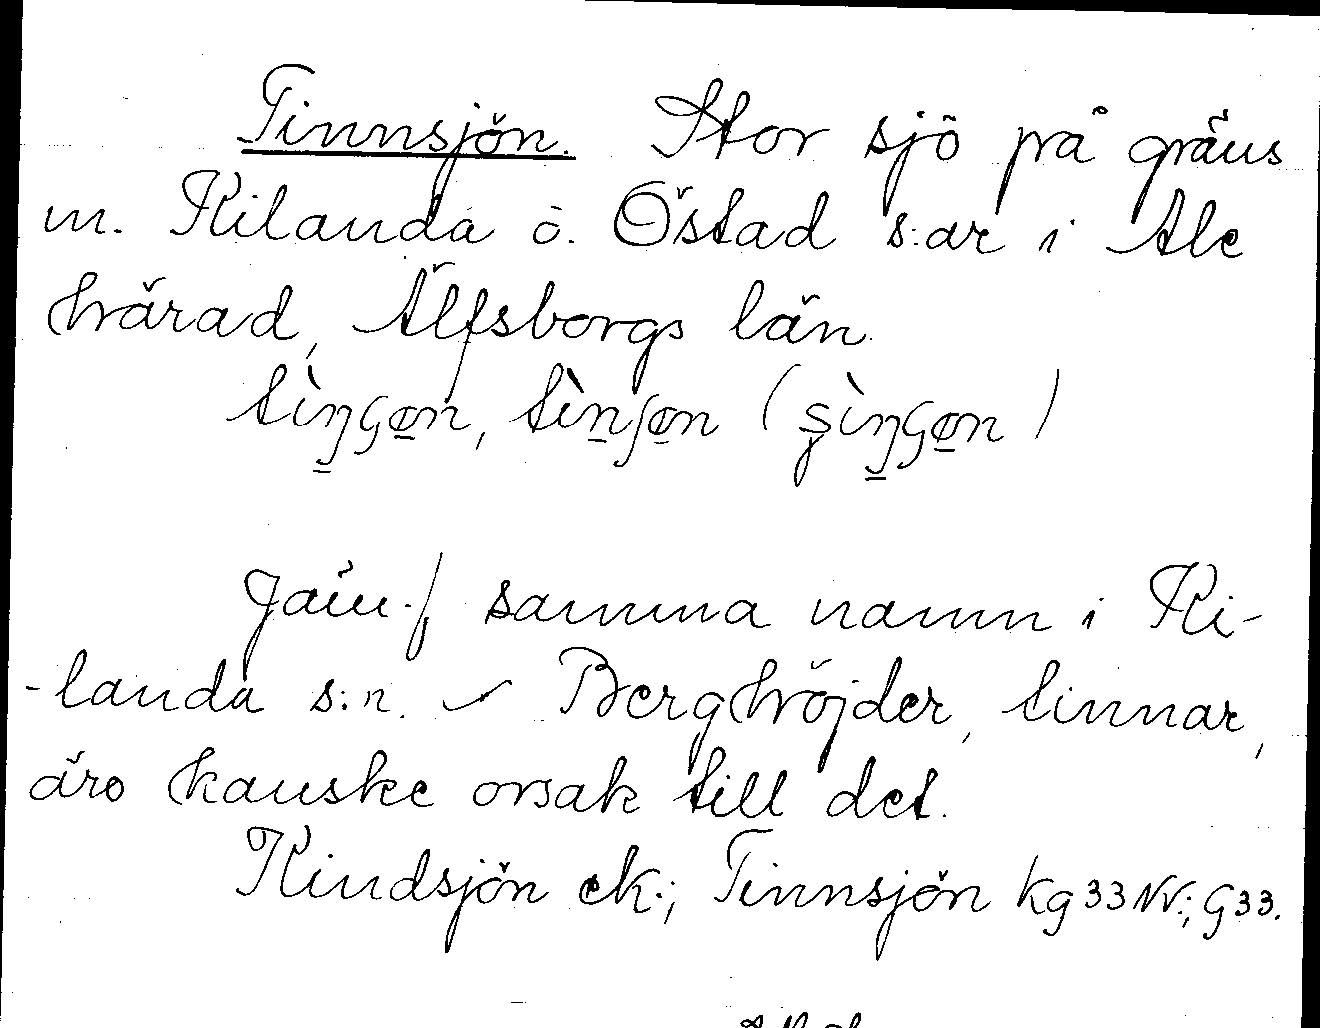 Tinnsjön. Stor sjö på gräns
m. Kilanda o. Östad s:ar i Ale
härad, Älfsborgs län.
Jäm.f samma namn i Ki-
-landa s:n. Berghöjder, tinnar,
äro kanske orsak till det.
Kindsjön ek.; Tinnsjön Kg 33 NV.; G 33.